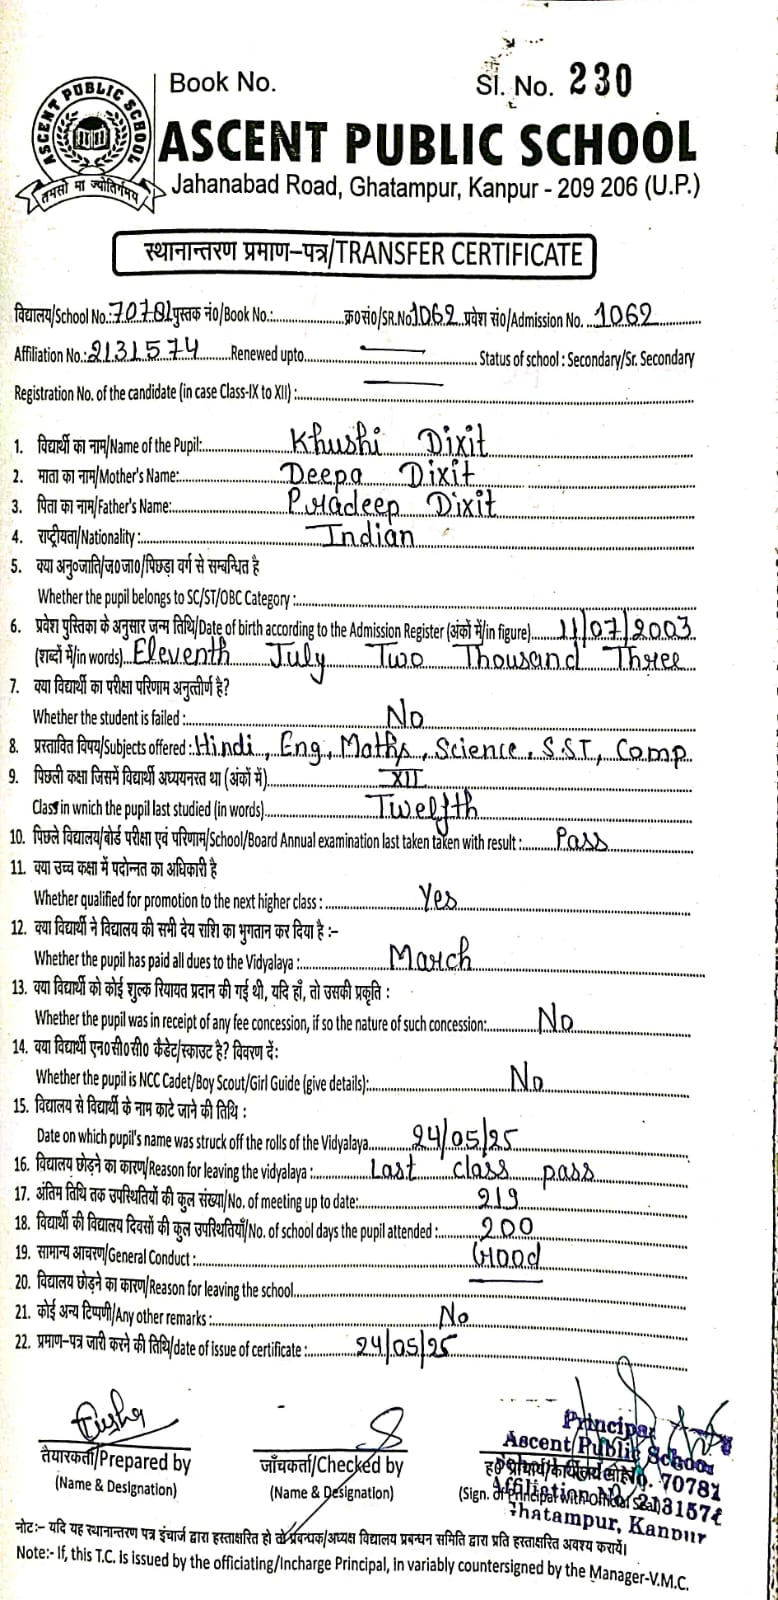 Book No. Sl. No. 230
ASCENT PUBLIC SCHOOL
तमसो मा ज्योतिर्गमय
ASCENT PUBLIC SCHOOL
Jahanabad Road, Ghatampur, Kanpur - 209 206 (U.P.)
स्थानान्तरण प्रमाण-पत्र/TRANSFER CERTIFICATE
विद्यालय/School No.:70781 पुस्तक नं०/Book No.:.................क्र०सं०/SR.No1062 प्रवेश सं०/Admission No. ...1062
Affiliation No.:2131574 Renewed upto............ Status of school : Secondary/Sr. Secondary
Registration No. of the candidate (in case Class-IX to XII) :............
1. विद्यार्थी का नाम/Name of the Pupil: Khushi Dixit
2. माता का नाम/Mother's Name: Deepa Dixit
3. पिता का नाम/Father's Name: Pradeep Dixit
4. राष्ट्रीयता/Nationality : Indian
5. क्या अनु०जाति/ज०जा०/पिछड़ा वर्ग से सम्बन्धित है
Whether the pupil belongs to SC/ST/OBC Category :............
6. प्रवेश पुस्तिका के अनुसार जन्म तिथि/Date of birth according to the Admission Register (अंकों में/in figure) 11/07/2003
(शब्दों में/in words) Eleventh July Two Thousand Three
7. क्या विद्यार्थी का परीक्षा परिणाम अनुत्तीर्ण है?
Whether the student is failed : No
8. प्रस्तावित विषय/Subjects offered : Hindi, Eng, Maths, Science, S.ST, Comp
9. पिछली कक्षा जिसमें विद्यार्थी अध्ययनरत था (अंकों में) XII
Class in wnich the pupil last studied (in words) Twelfth
10. पिछले विद्यालय/बोर्ड परीक्षा एवं परिणाम/School/Board Annual examination last taken taken with result : Pass
11. क्या उच्च कक्षा में पदोन्नत का अधिकारी है
Whether qualified for promotion to the next higher class : Yes
12. क्या विद्यार्थी ने विद्यालय की सभी देय राशि का भुगतान कर दिया है :-
Whether the pupil has paid all dues to the Vidyalaya : March
13. क्या विद्यार्थी को कोई शुल्क रियायत प्रदान की गई थी, यदि हाँ, तो उसकी प्रकृति :
Whether the pupil was in receipt of any fee concession, if so the nature of such concession: No
14. क्या विद्यार्थी एन०सी०सी० कैडेट/स्काउट है? विवरण दें:
Whether the pupil is NCC Cadet/Boy Scout/Girl Guide (give details): No
15. विद्यालय से विद्यार्थी के नाम काटे जाने की तिथि :
Date on which pupil's name was struck off the rolls of the Vidyalaya 24/05/25
16. विद्यालय छोड़ने का कारण/Reason for leaving the vidyalaya : Last class pass
17. अंतिम तिथि तक उपस्थितियों की कुल संख्या/No. of meeting up to date: 219
18. विद्यार्थी की विद्यालय दिवसों की कुल उपस्थितियाँ/No. of school days the pupil attended : 200
19. सामान्य आचरण/General Conduct : Good
20. विद्यालय छोड़ने का कारण/Reason for leaving the school............
21. कोई अन्य टिप्पणी/Any other remarks : No
22. प्रमाण-पत्र जारी करने की तिथि/date of issue of certificate : 24/05/25
तैयारकर्ता/Prepared by
(Name & Designation)
जाँचकर्ता/Checked by
(Name & Designation)
Principal
Ascent Public School
School Code No. 70781
(Sign. of Principal with Official Seal)
Affiliation No. 2131574
Ghatampur, Kanpur
नोट:- यदि यह स्थानान्तरण पत्र इंचार्ज द्वारा हस्ताक्षरित हो तो प्रबन्धक/अध्यक्ष विद्यालय प्रबन्धन समिति द्वारा प्रति हस्ताक्षरित अवश्य करायें।
Note:- If, this T.C. is issued by the officiating/Incharge Principal, in variably countersigned by the Manager-V.M.C.